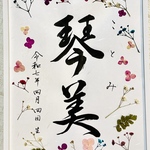 琴美
とみ
令和七年四月四日生